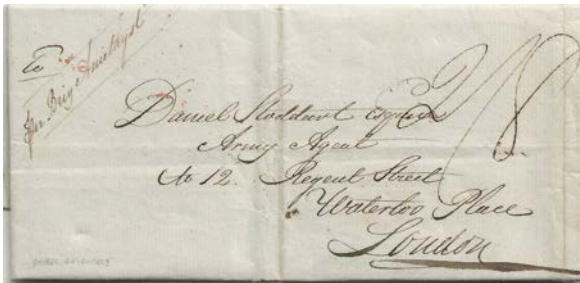 per Brig Amethyst
2/8
Daniel Stoddart Esquire
Army Agent
No 12. Regent Street
Waterloo Place
London